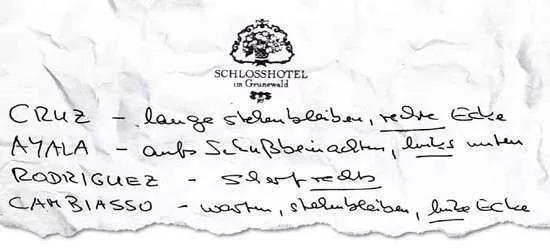 SCHLOSSHOTEL
im Grunewald
CRUZ – lange stehenbleiben, rechte Ecke
AYALA – aufs Schußbein achten, links unten
RODRIGUEZ – Scharf rechts
CAMBIASSO – warten, stehenbleiben, linke Ecke